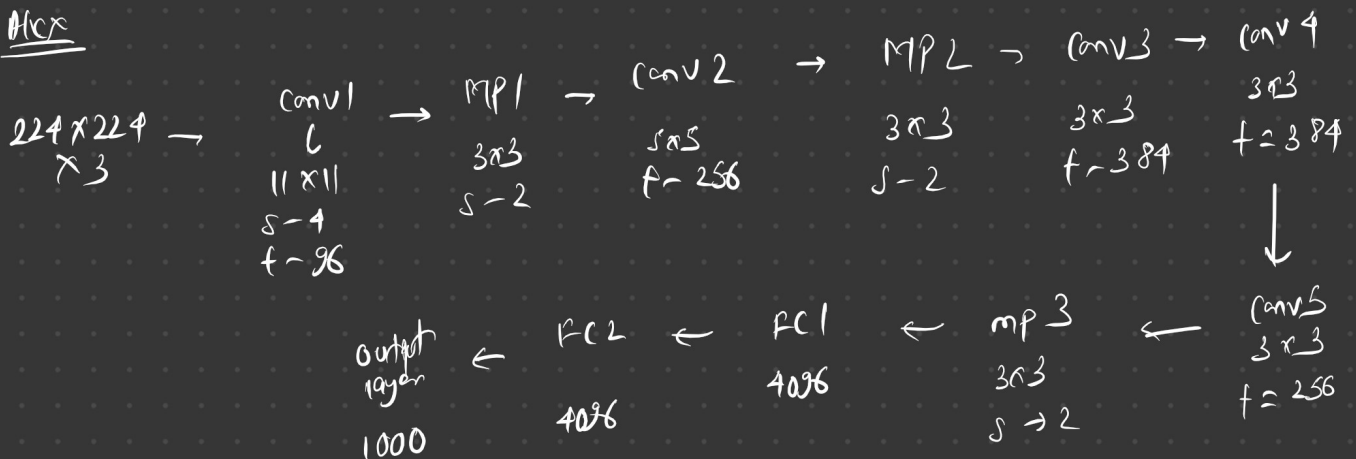 Alex
224 x 224
x 3
→
Conv1
11 x 11
s - 4
f - 96
→
MP1
3x3
s - 2
→
Conv 2
5x5
f - 256
→
MP2
3x3
s - 2
→
Conv3
3x3
f - 384
→
Conv 4
3x3
f = 384
↓
Conv5
3 x 3
f = 256
←
mp 3
3x3
s → 2
←
FC1
4096
←
FC2
4096
←
output
layer
1000